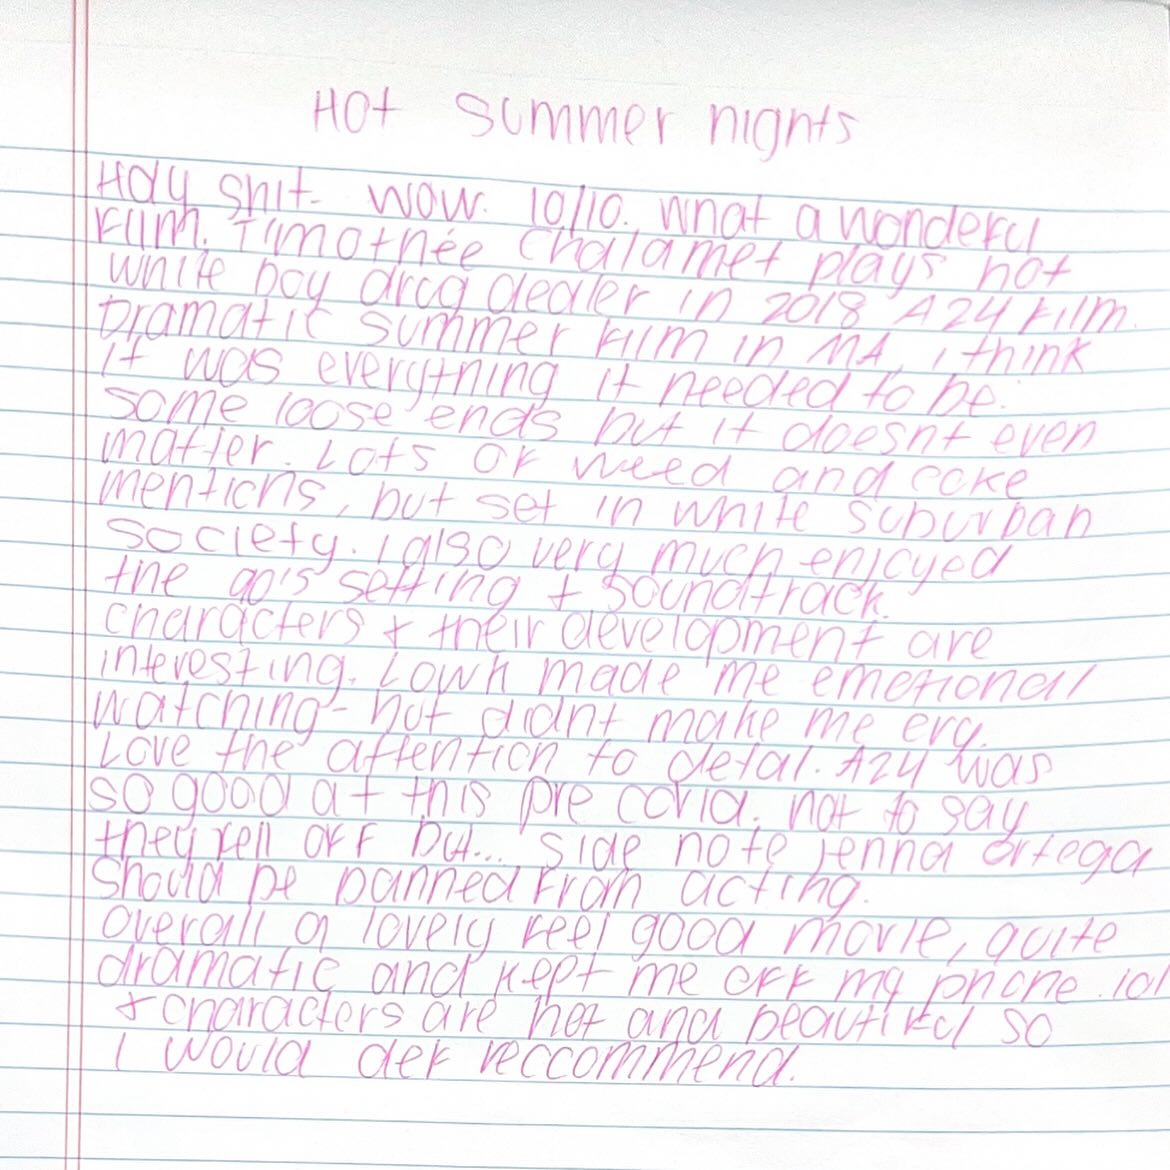 Hot summer nights
Holy shit- wow. 10/10. what a wonderful
film. Timothée Chalamet plays hot
white boy drug dealer in 2018 A24 film.
Dramatic summer film in MA, i think
it was everything it needed to be.
some loose ends but it doesnt even
matter. Lots of weed and coke
mentions, but set in white suburban
society. i also very much enjoyed
the 90's setting + soundtrack.
characters + their development are
interesting. Lowk made me emotional
watching- but didnt make me cry.
Love the attention to detal. A24 was
so good at this pre covid. not to say
they fell off but... side note jenna ortega
should be banned from acting.
overall a lovely feel good movie, quite
dramatic and kept me off my phone lol
+ characters are hot and beautiful so
I would def reccommend.